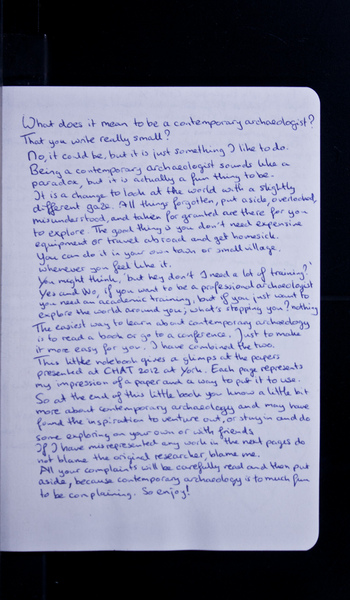 What does it mean to be a contemporary archaeologist?
That you write really small?
No, it could be, but it is just something I like to do.
Being a contemporary archaeologist sounds like a
paradox, but it is actually a fun thing to be.
It is a change to look at the world with a slightly
different gaze. All things forgotten, put aside, overlooked,
misunderstood, and taken for granted are there for you
to explore. The good thing is you don't need expensive
equipment or travel abroad and get homesick.
You can do it in your own town or small village,
wherever you feel like it.
You might think, "but hey don't I need a lot of training?"
Yes and No, if you want to be a professional archaeologist
you need an academic training, but if you just want to
explore the world around you, what's stopping you? nothing
The easiest way to learn about contemporary archaeology
is to read a book or go to a conference. Just to make
it more easy for you, I have combined the two.
This little notebook gives a glimps at the papers
presented at CHAT 2012 at York. Each page represents
my impression of a paper and a way to put it to use.
So at the end of this little book you know a little bit
more about contemporary archaeology and may have
found the inspiration to venture out, or stay in and do
some exploring on your own or with friends
If I have misrepresented any work in the next pages do
not blame the original researcher, blame me.
All your complaints will be carefully read and then put
aside, because contemporary archaeology is to much fun
to be complaining. So enjoy!